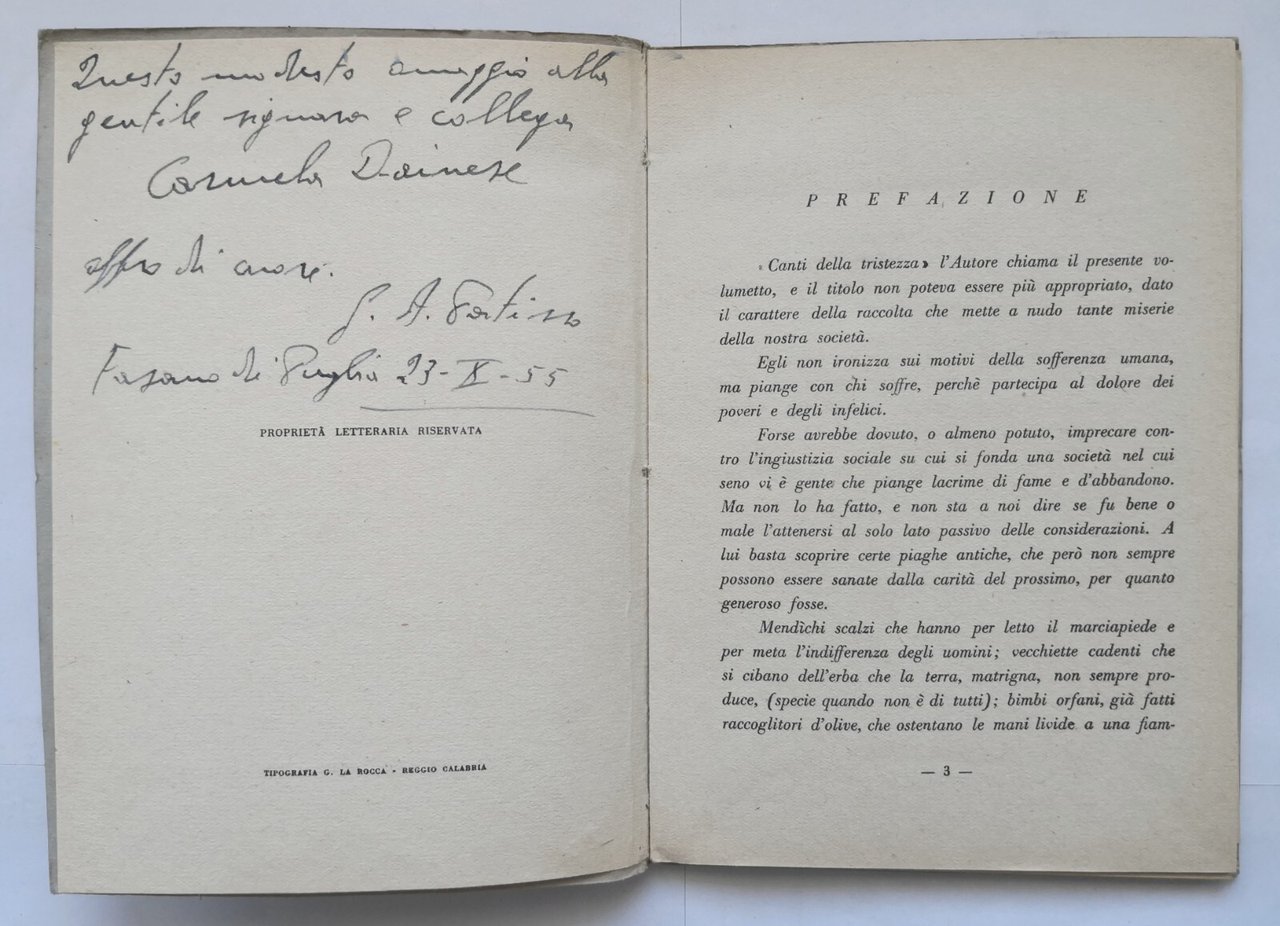 Questo modesto omaggio alla
gentile signora e collega
Carmela Dainese
offro di cuore.
G. A.
Fasano di Puglia 23-X-55
PROPRIETÀ LETTERARIA RISERVATA
TIPOGRAFIA G. LA ROCCA - REGGIO CALABRIA
PREFAZIONE
« Canti della tristezza » l'Autore chiama il presente vo-
lumetto, e il titolo non poteva essere più appropriato, dato
il carattere della raccolta che mette a nudo tante miserie
della nostra società.
Egli non ironizza sui motivi della sofferenza umana,
ma piange con chi soffre, perchè partecipa al dolore dei
poveri e degli infelici.
Forse avrebbe dovuto, o almeno potuto, imprecare con-
tro l'ingiustizia sociale su cui si fonda una società nel cui
seno vi è gente che piange lacrime di fame e d'abbandono.
Ma non lo ha fatto, e non sta a noi dire se fu bene o
male l'attenersi al solo lato passivo delle considerazioni. A
lui basta scoprire certe piaghe antiche, che però non sempre
possono essere sanate dalla carità del prossimo, per quanto
generoso fosse.
Mendìchi scalzi che hanno per letto il marciapiede e
per meta l'indifferenza degli uomini; vecchiette cadenti che
si cibano dell'erba che la terra, matrigna, non sempre pro-
duce, (specie quando non è di tutti); bimbi orfani, già fatti
raccoglitori d'olive, che ostentano le mani livide a una fiam-
— 3 —